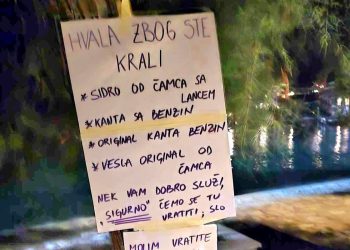 HVALA ZBOG STE
KRALI
*SIDRO OD ČAMCA SA
LANCEM
*KANTA SA BENZIN
*ORIGINAL KANTA BENZIN
*VESLA ORIGINAL OD
ČAMCA
NEK VAM DOBRO SLUŽI,
"SIGURNO" ĆEMO SE TU
VRATITI, SLO
MOLIM VRATITE